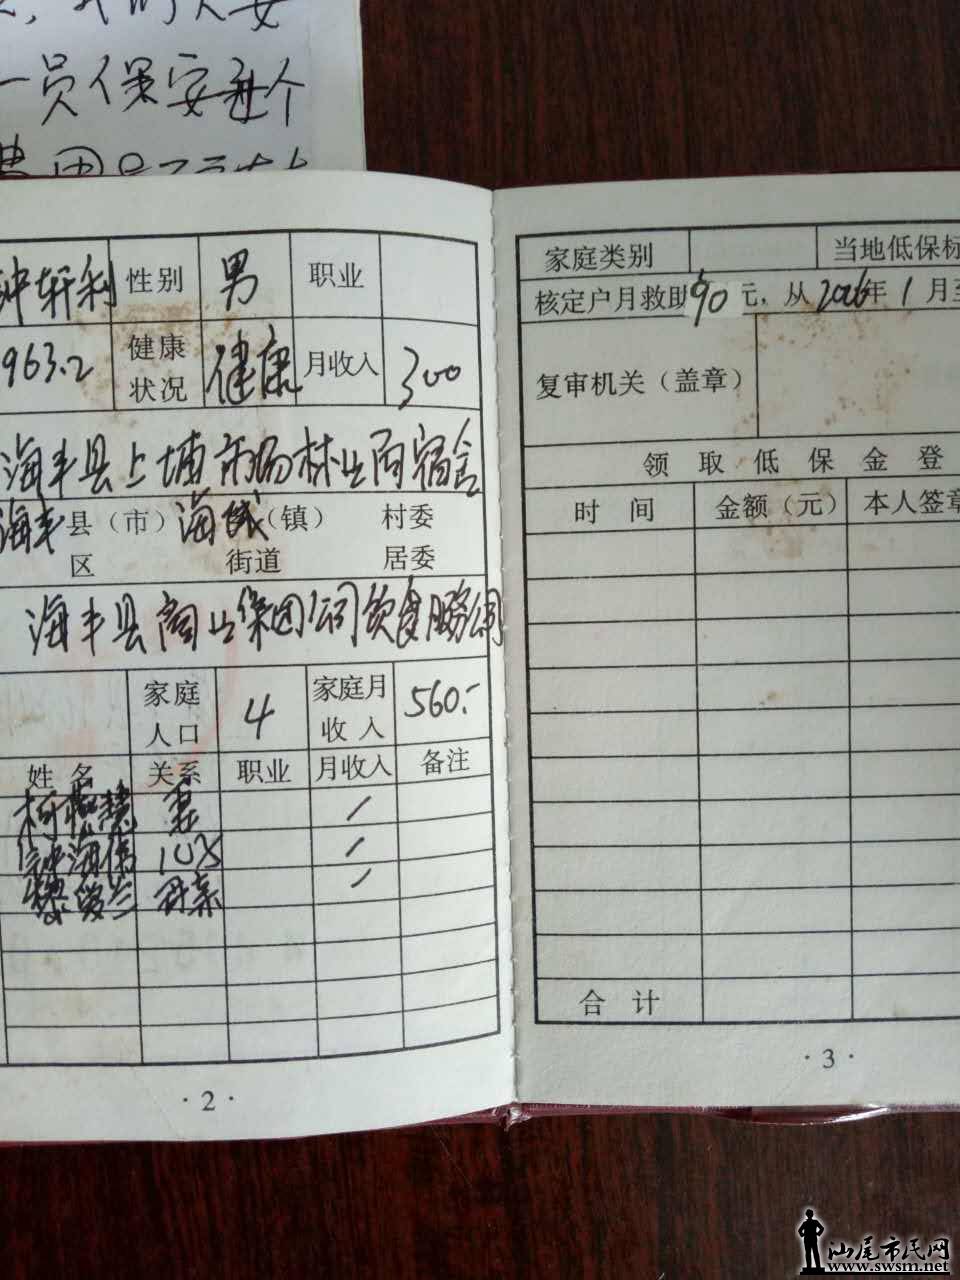 一员保安
钟轩利 性别 男 职业
963.2 健康状况 健康 月收入 300
海丰县上埔市场林业局宿舍
海丰县（市）区 海城（镇）街道 村委 居委
海丰县商业集团公司饮食服务公司
家庭人口 4 家庭月收入 560.-
姓名 关系 职业 月收入 备注
妻 /
钟海伟 /
黎爱兰 母亲 /
· 2 ·
家庭类别 当地低保标
核定户月救助 90 元，从 2006年 1 月至
复审机关（盖章）
领取低保金登
时间 金额（元） 本人签章
合计
· 3 ·
汕尾市民网
www.swsm.net